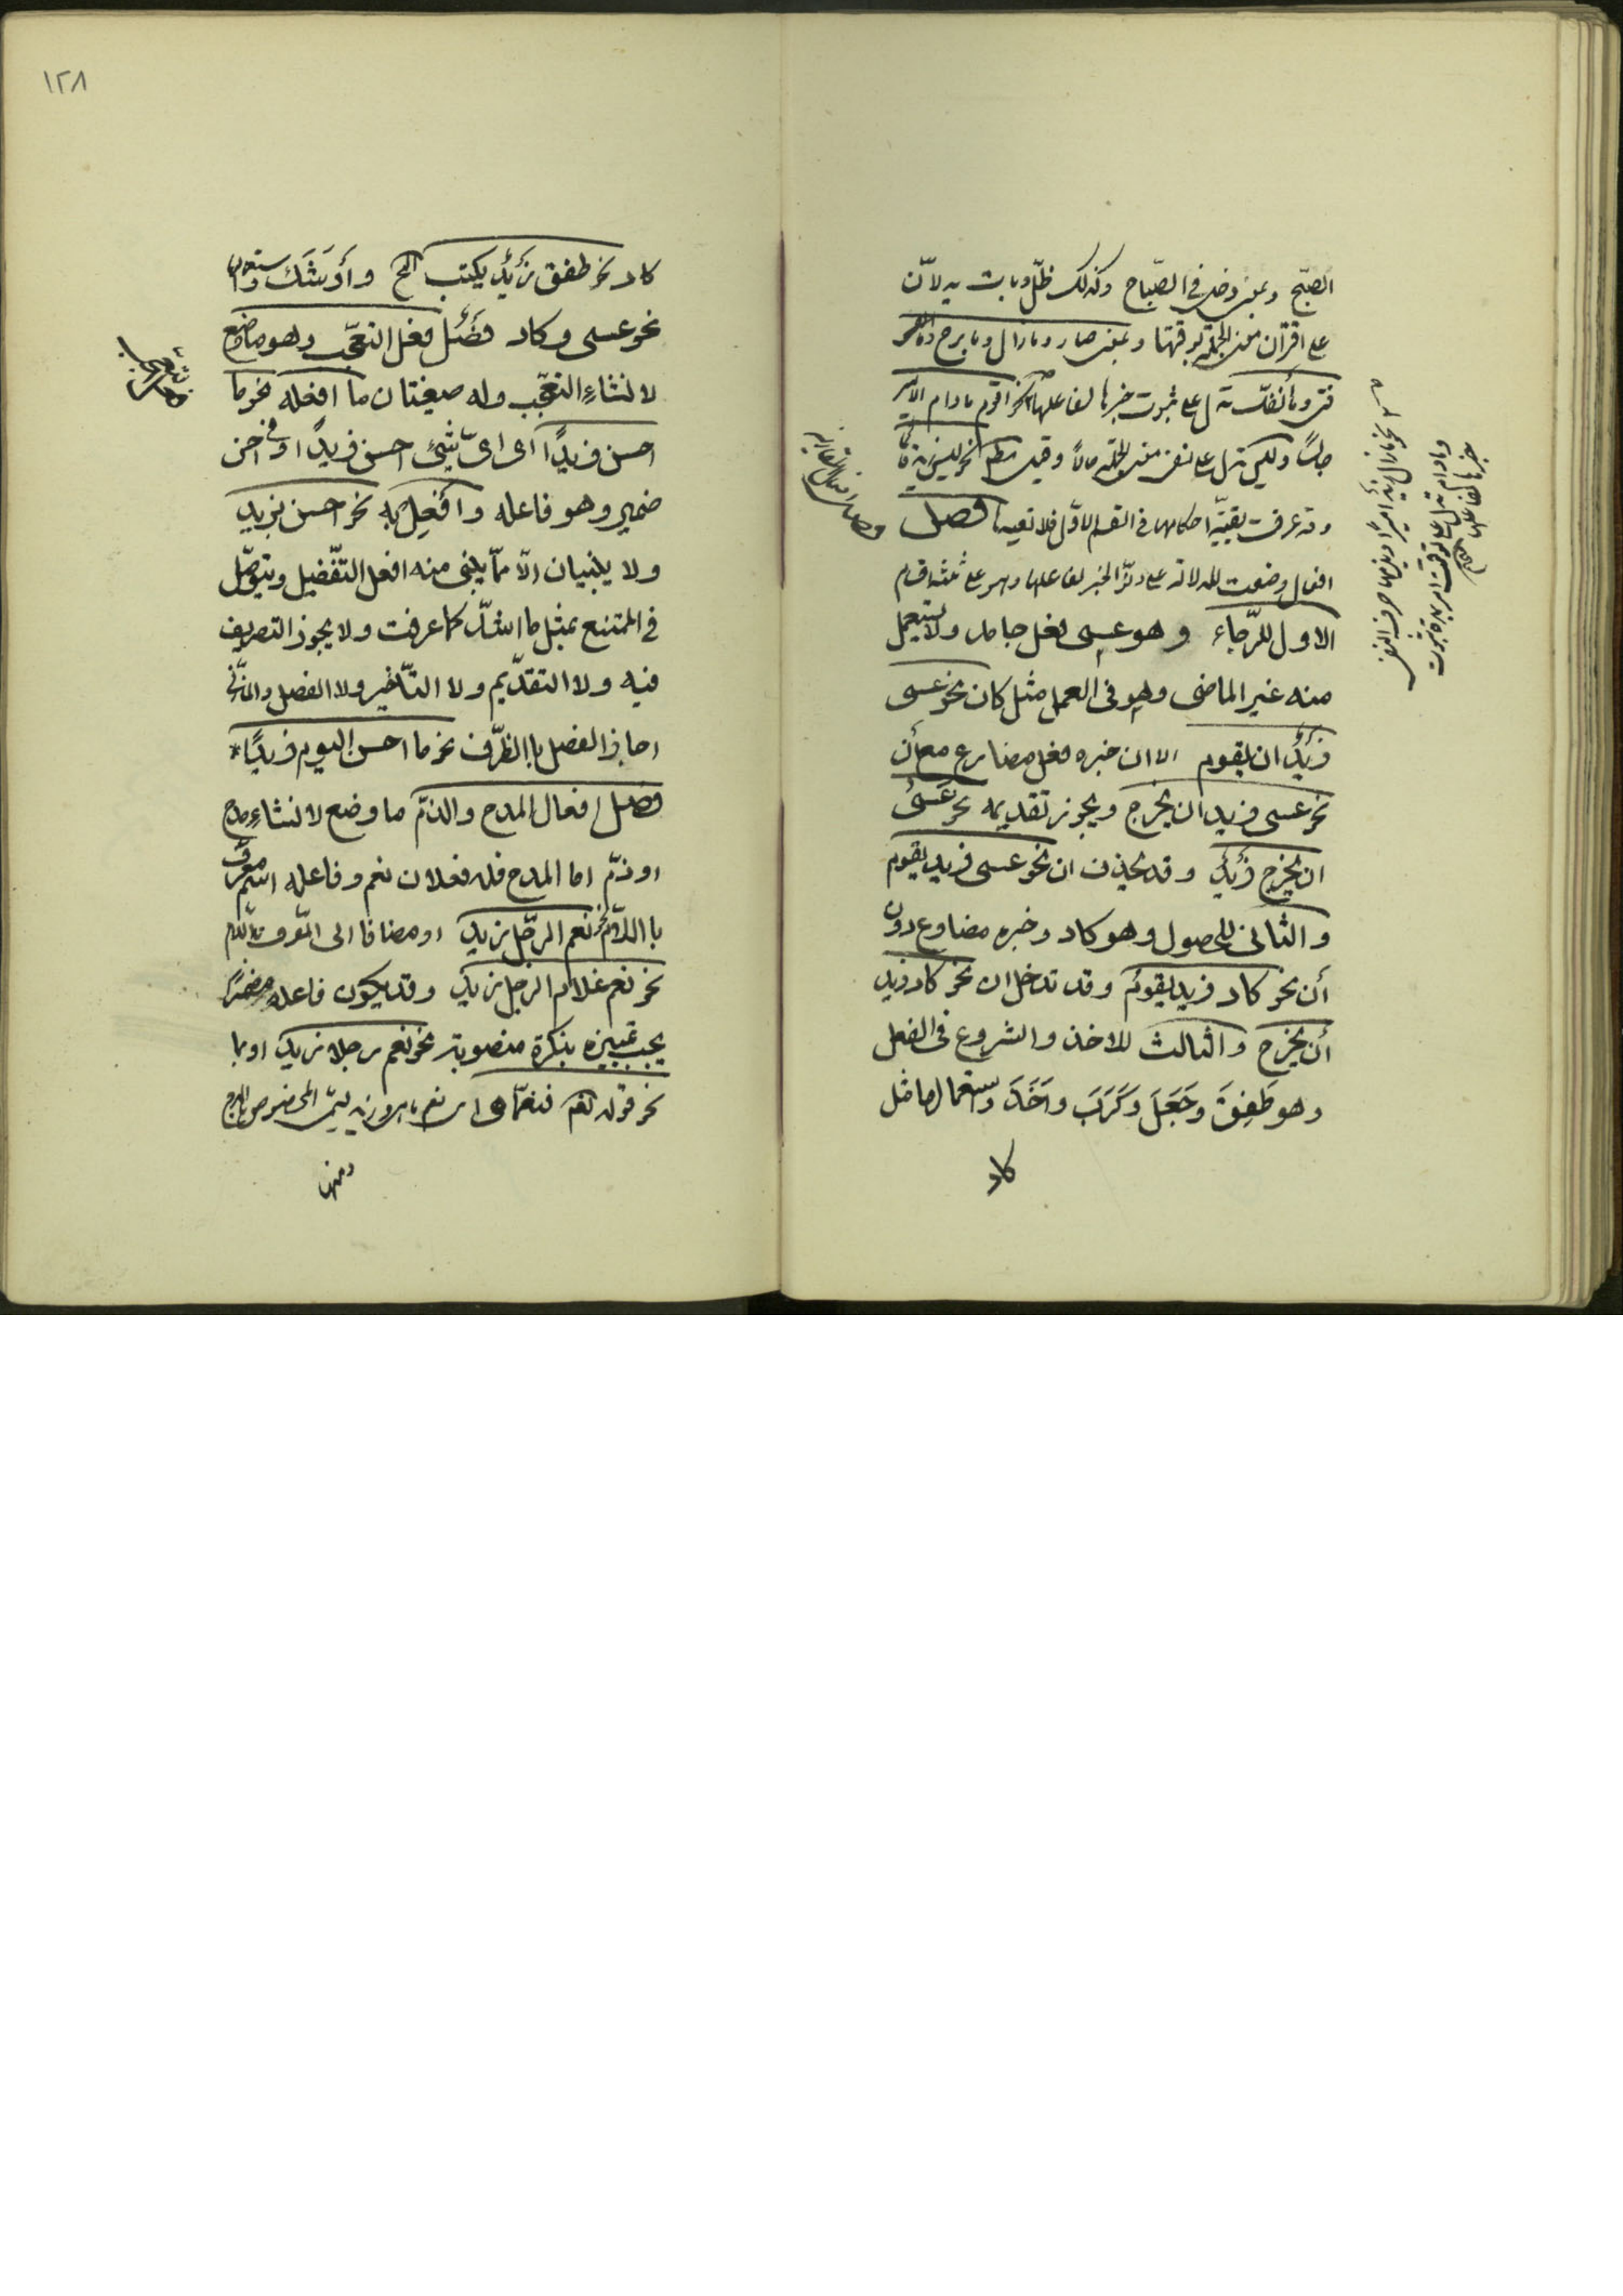 الصبّح وبمعنى دخل فى الصّباح وكذلك ظلّ وبات يدلانّ
على اقتران معنى الجملة بوقتها وبمعنى صار وما زال وما برح وما
فتى وما انفكّ تدل على ثبوت خبرها لفاعلها نحو اقوم ما دام الامير
جالسًا وليس تدل على نفى معنى الجملة حالاً وقيل مطلقا نحو ليس زيد قائمًا
وقد عرفت بقيّة احكامها فى القسم الاوّل فلا نعيدها فصل
افعال وضعت للدلالة على دنوّ الخبر لفاعلها وهو على ثلثة اقسام
الاول للرّجاء وهو عسى فعل جامد ولا يستعمل
منه غير الماضى وهو فى العمل مثل كان نحو عسى
زيدٌ ان يقوم الا ان خبره فعل مضارع مع أن
نحو عسى زيد ان يخرج ويجوز تقديمه نحو عسى
ان يخرج زيدٌ وقد يحذف ان نحو عسى زيد يقوم
والثانى للحصول وهو كاد وخبره مضارع دون
أن نحو كاد زيد يقومُ وقد تدخل ان نحو كاد زيد
أن يخرج والثالث للاخذ والشروع فى الفعل
وهو طَفِقَ وجَعَلَ وكَرَبَ واَخَذَ واستعمالها مثل
كاد
نحو ما زال زيد أميرًا ويلزمها حرف النفى
وما دام تدل على توقيت امر بمدة ثبوت
خبرها لفاعلها
١٢٨
كاد نحو طفق زيدٌ يكتب الخ وأوشَكَ واستعماله
نحو عسى وكاد فصلٌ فعل التعجّب وهو ما وضع
لانشاءِ التعجّب وله صيغتان ما افعله نحو ما
احسن زيدًا اى اىّ شيئ احسن زيدًا وفى احسن
ضمير وهو فاعله وأفعِل به نحو احسن بزيد
ولا يبنيان الاّ ممّا يبنى منه افعل التّفضيل ويتوصّل
فى الممتنع بمثل ما اشدّ كما عرفت ولا يجوز التصريف
فيه ولا التقدّيم ولا التّأخير ولا الفصل والمازنى
اجاز الفصل باالظرّف نحو ما احسن اليوم زيدًا
فصل افعال المدح والذمّ ما وضع لانشاءِ مدح
او ذمّ اما المدح فله فعلان نعم وفاعله اسم معرّف
باالّلام نحو نعم الرجّل زيد او مضافا الى المعرف باللام
نحو نعم غلام الرجل زيد وقد يكون فاعله مضمرًا
يجب تمييزه بنكرة منصوبة نحو نعم رجلا زيد او بما
نحو قوله تعه فنعمّا هى اى نعم ما هو وزيد يسمّى المخصوص بالمدح
ومنها